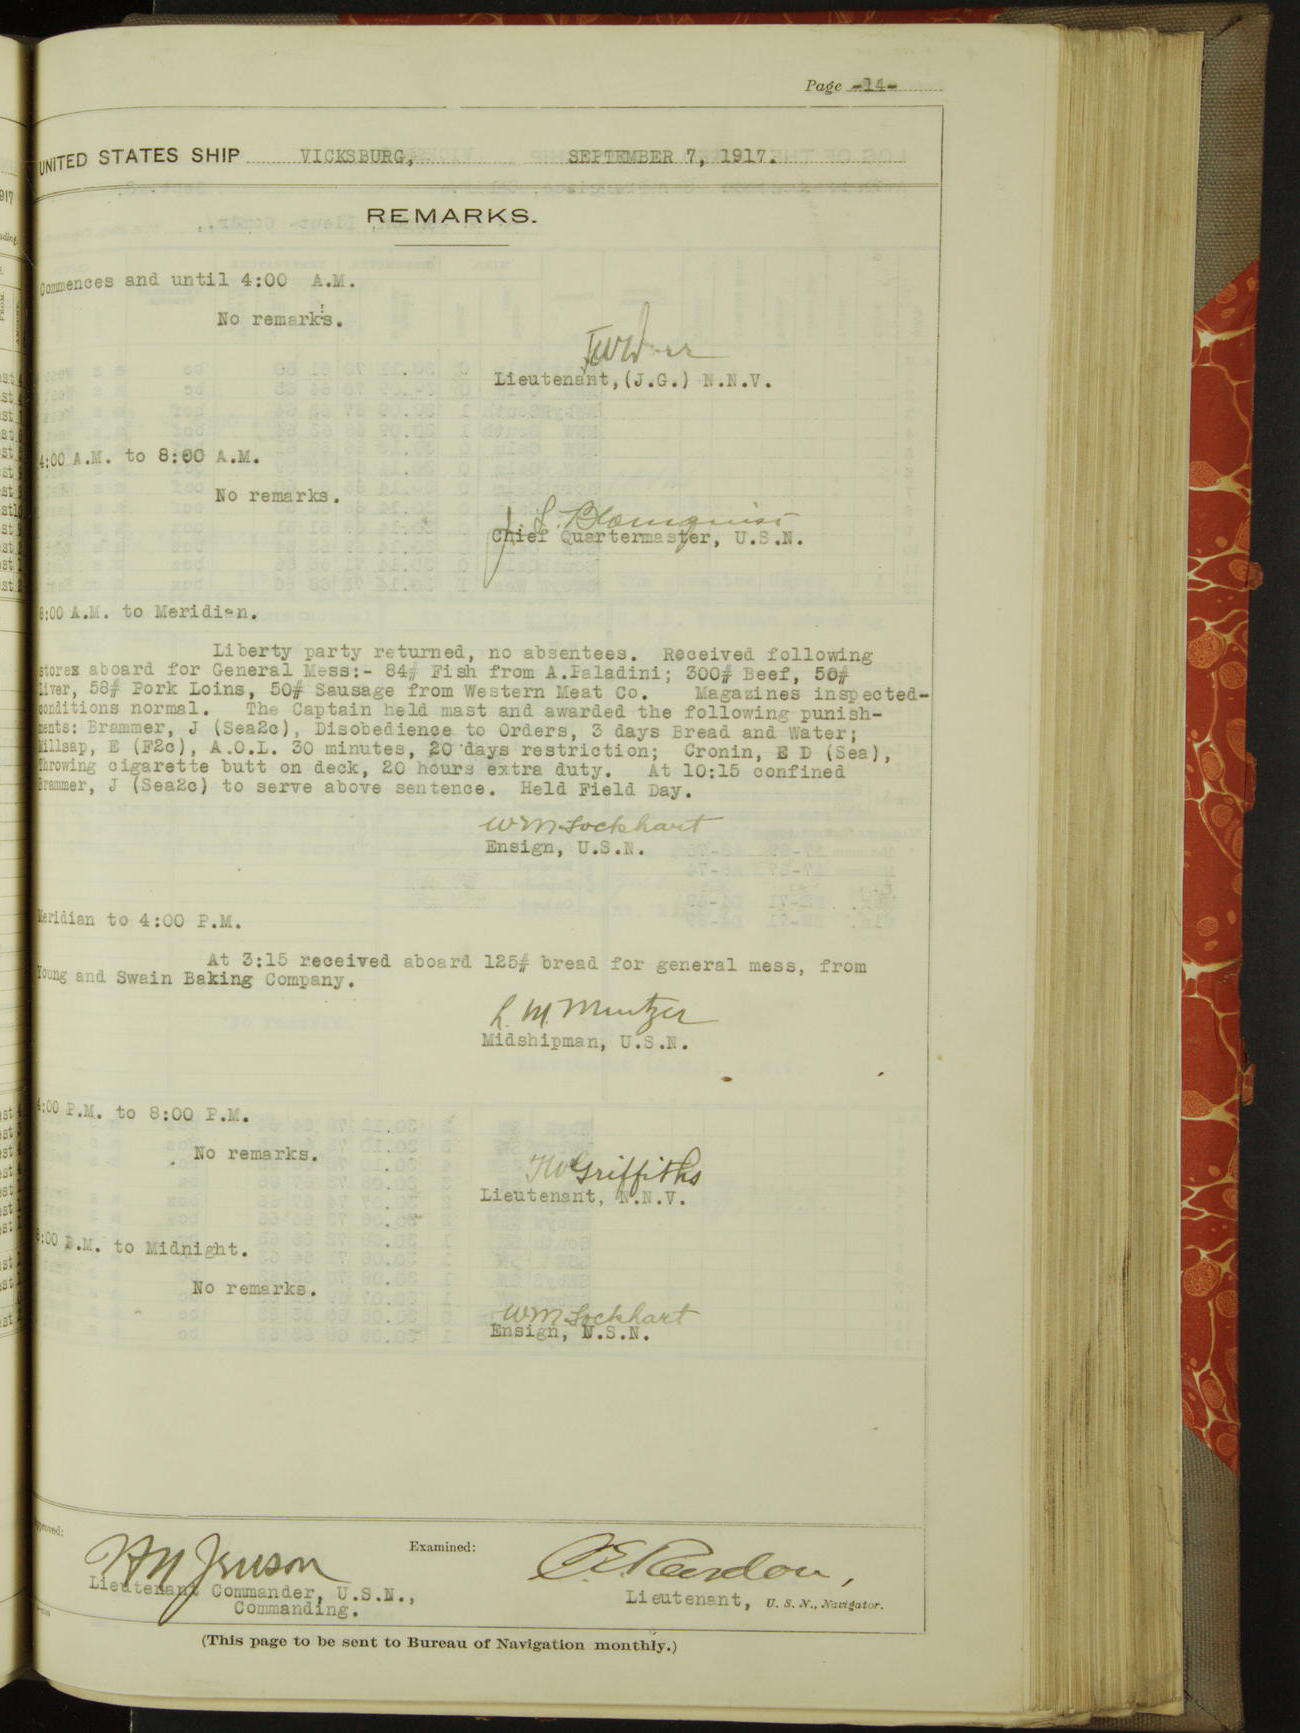 Page -14-
UNITED STATES SHIP VICKSBURG, SEPTEMBER 7, 1917.
REMARKS.
Commences and until 4:00 A.M.
No remarks.
Lieutenant,(J.G.) N.N.V.
4:00 A.M. to 8:00 A.M.
No remarks.
J. L. Blomquist
Chief Quartermaster, U.S.N.
8:00 A.M. to Meridian.
Liberty party returned, no absentees. Received following
stores aboard for General Mess:- 84# Fish from A.Paladini; 300# Beef, 50#
Liver, 58# Pork Loins, 50# Sausage from Western Meat Co. Magazines inspected-
conditions normal. The Captain held mast and awarded the following punish-
ments: Brammer, J (Sea2c), Disobedience to Orders, 3 days Bread and Water;
Millsap, E (F2c), A.O.L. 30 minutes, 20 days restriction; Cronin, E D (Sea),
Throwing cigarette butt on deck, 20 hours extra duty. At 10:15 confined
Brammer, J (Sea2c) to serve above sentence. Held Field Day.
WM Lockhart
Ensign, U.S.N.
Meridian to 4:00 P.M.
At 3:15 received aboard 125# bread for general mess, from
Young and Swain Baking Company.
L. M. Mintzer
Midshipman, U.S.N.
4:00 P.M. to 8:00 P.M.
No remarks.
Griffiths
Lieutenant, N.N.V.
8:00 P.M. to Midnight.
No remarks.
WM Lockhart
Ensign, U.S.N.
Approved:
Examined:
Lieutenant Commander, U.S.N.,
Commanding.
Lieutenant, U. S. N., Navigator.
(This page to be sent to Bureau of Navigation monthly.)